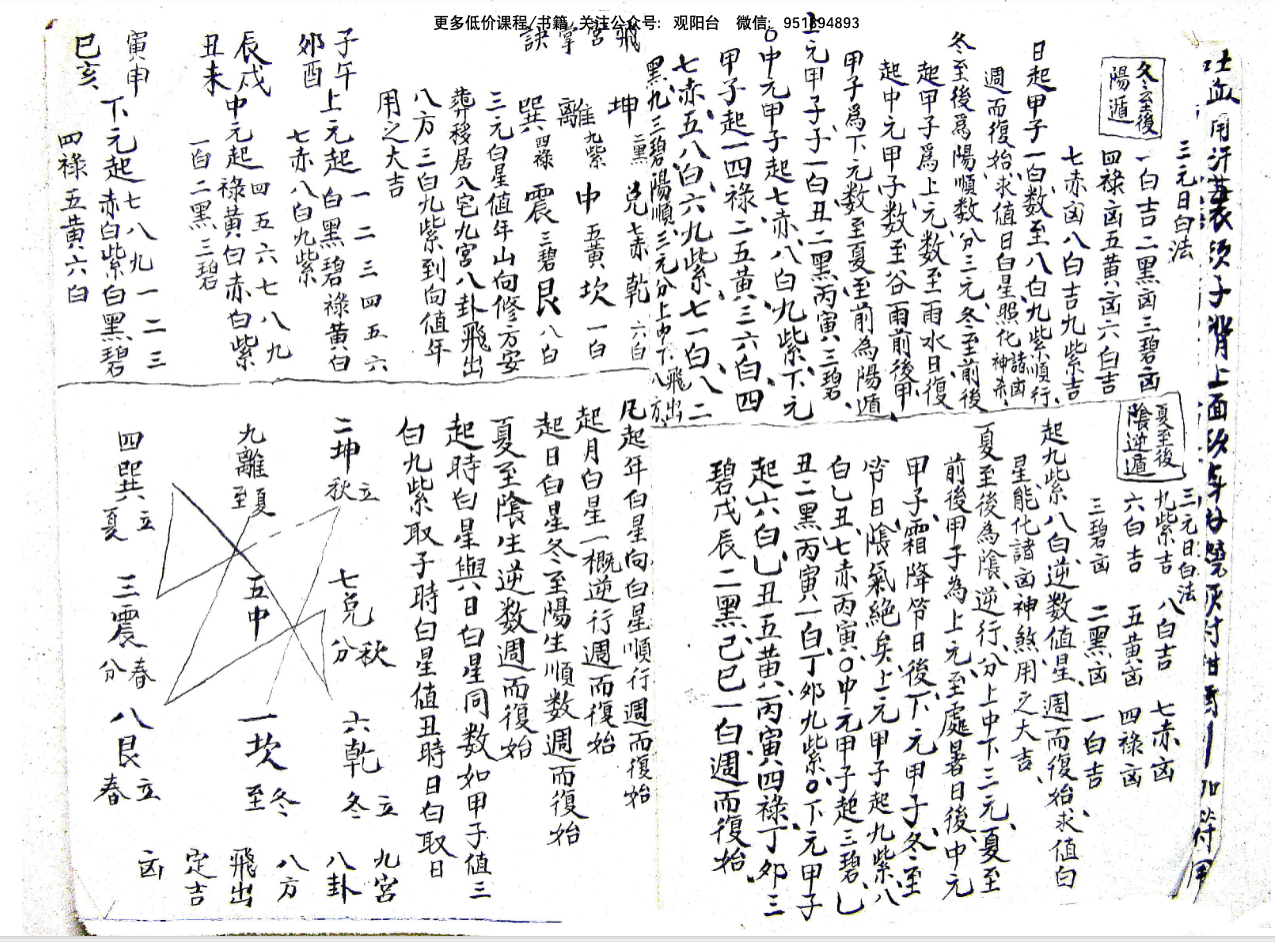 更多低价课程/书籍 关注公众号: 观阳台 微信: 951894893
吐血用汗 上面
冬至後
陽遁
三元日白法
一白吉二黑凶三碧凶
四祿凶五黄凶六白吉
七赤凶八白吉九紫吉
日起甲子一白数至八白九紫順行
週而復始求值日白星照化諸凶神煞
冬至後爲陽順数分三元冬至前後
起甲子爲上元数至雨水日復
起中元甲子数至谷雨前後甲
甲子爲下元数至夏至前為陽遁
上元甲子子一白丑二黑丙寅三碧
〇中元甲子起七赤八白九紫下元
甲子起一四祿二五黄三六白四
七赤五八白六九紫七一白八二
黑九三碧陽順三元分上中下飛出八方
飛宮掌訣
坤二黑 兑七赤 乾六白
離九紫 中五黄 坎一白
巽四祿 震三碧 艮八白
三元白星值年山向修方安
葬移居八宅九宮八卦飛出
八方三白九紫到向值年
用之大吉
子午
卯酉
上元起
一二三四五六
白黑碧祿黄白
七赤八白九紫
辰戌
丑未
中元起
四五六七八九
祿黄白赤白紫
一白二黑三碧
寅申
巳亥
下元起
七八九一二三
赤白紫白黑碧
四祿五黄六白
夏至後
陰逆遁
三元日白法
九紫吉 八白吉 七赤凶
六白吉 五黄凶 四祿凶
三碧凶 二黑凶 一白吉
起九紫八白逆数值星週而復始求值白
星能化諸凶神煞用之大吉
夏至後為陰逆行分上中下三元夏至
前後甲子為上元至處暑日後中元
甲子霜降節日後下元甲子冬至
節日陰氣絶矣上元甲子起九紫八
白乙丑七赤丙寅〇中元甲子起三碧乙
丑二黑丙寅一白丁卯九紫〇下元甲子
起六白乙丑五黄丙寅四祿丁卯三
碧戊辰二黑己巳一白週而復始
凡起年白星向白星順行週而復始
起月白星一概逆行週而復始
起日白星冬至陽生順数週而復始
夏至陰生逆数週而復始
起時白星與日白星同数如甲子值三
白九紫取子時白星值丑時日白取日
二坤立秋
七兑秋分
六乾立冬
九離夏至
五中
一坎冬至
四巽立夏
三震春分
八艮立春
九宮
八卦
八方
飛出
定吉
凶